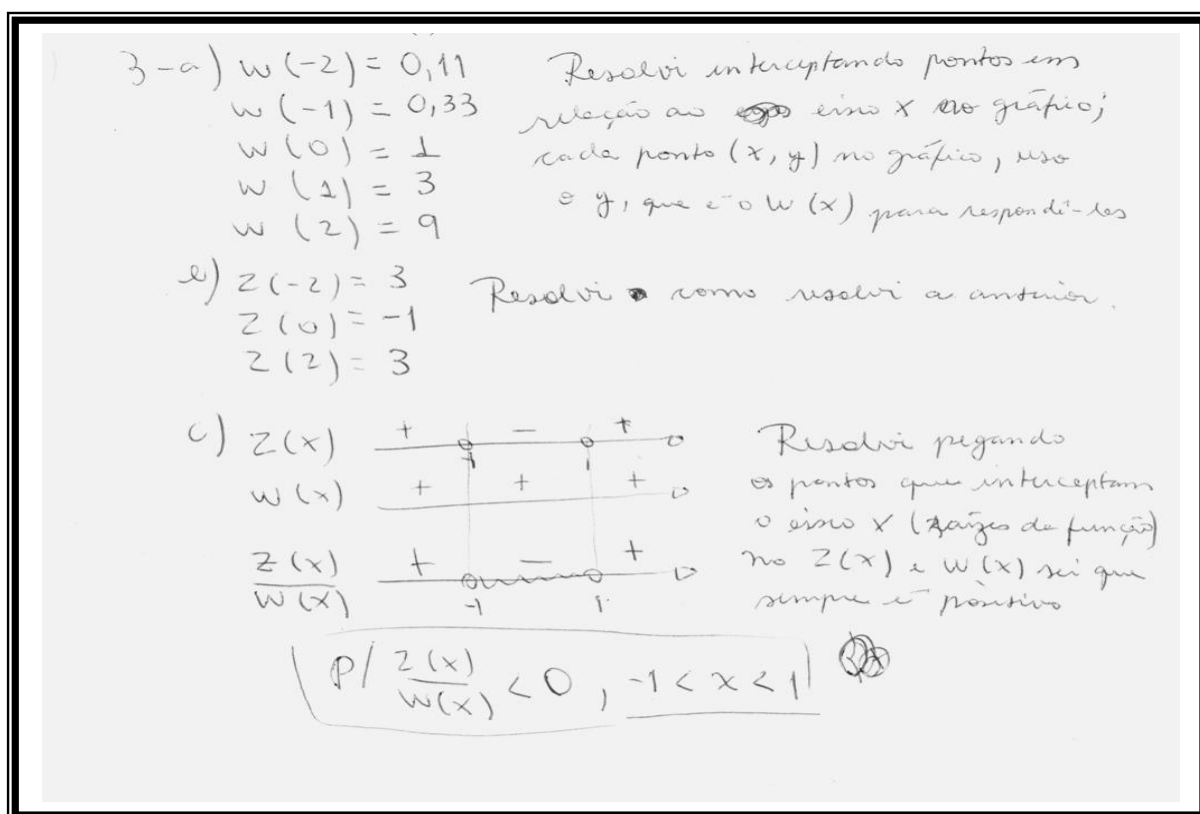 3-a) w(-2) = 0,11 Resolvi interceptando pontos em
w(-1) = 0,33 relação ao eixo x no gráfico;
w(0) = 1 cada ponto (x, y) no gráfico, uso
w(1) = 3 o y, que é o W(x) para respondê-las
w(2) = 9
b) Z(-2) = 3 Resolvi como resolvi a anterior.
Z(0) = -1
Z(2) = 3
c) Z(x) + - + Resolvi pegando
-1 1
W(x) + + + os pontos que interceptam
o eixo x (raízes da função)
Z(x) + - + no Z(x) e W(x) sei que
W(x) -1 1 sempre é positivo
P/ Z(x)/W(x) < 0, -1 < x < 1